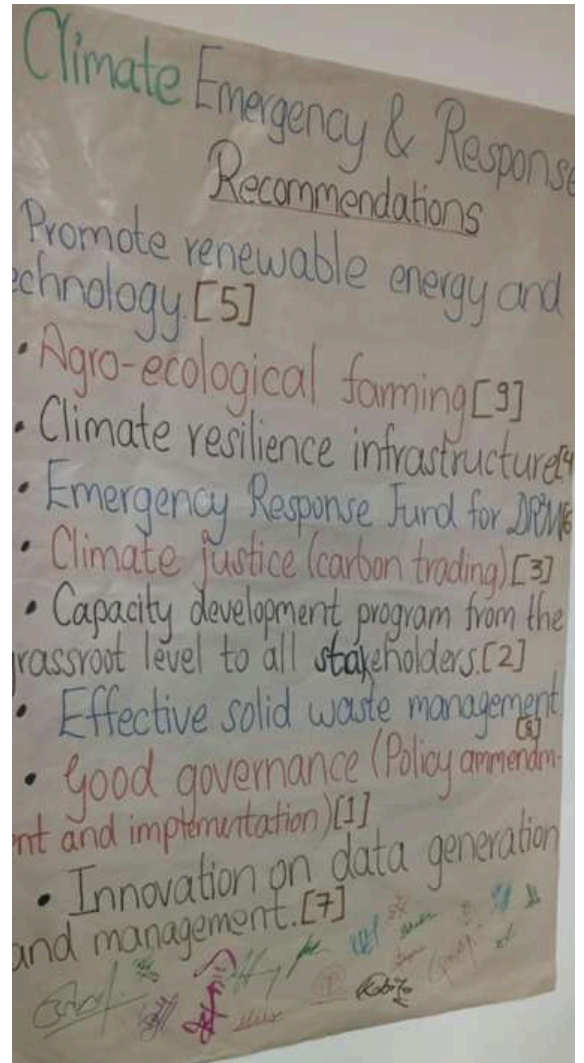 Climate Emergency & Response
Recommendations
Promote renewable energy and
echnology.[5]
• Agro-ecological farming[9]
• Climate resilience infrastructure[4
• Emergency Response Fund for DRM[6
• Climate justice (carbon trading)[3]
• Capacity development program from the
rassroot level to all stakeholders.[2]
• Effective solid waste management.
[8]
• Good governance (Policy ammendm-
nt and implementation)[1]
• Innovation on data generation
and management.[7]